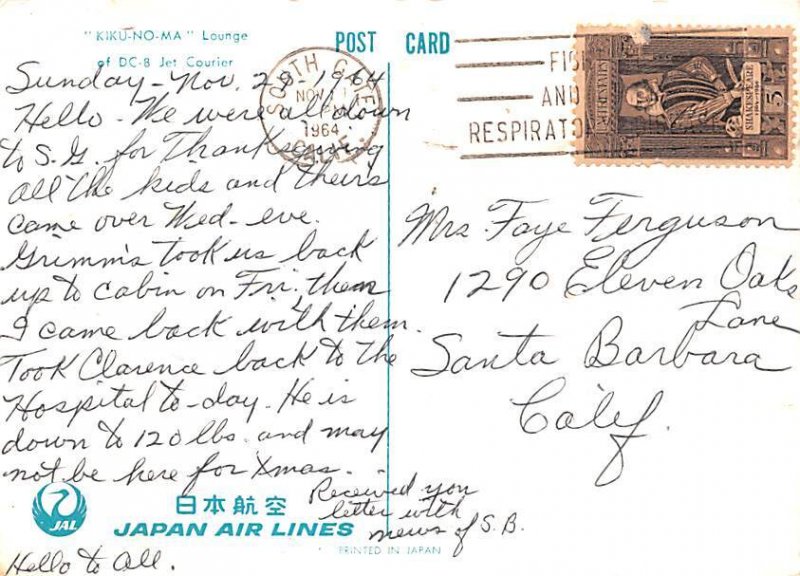 "KIKU-NO-MA" Lounge
of DC-8 Jet Courier
POST CARD
SOUTH GATE
NOV
1964
FIG
AND
RESPIRATO
U.S. 5 CENTS
SHAKESPEARE
Sunday - Nov. 29-1964
Hello - We were all down
to S.G. for Thanksgiving
all the kids and theirs
came over Wed - eve.
Grimm's took us back
up to cabin on Fri, then
I came back with them.
Took Clarence back to the
Hospital to-day. He is
down to 120 lbs. and may
not be here for Xmas.
Received you
letter with
news of S.B.
Hello to all.
Mrs. Faye Ferguson
1290 Eleven Oaks
Lane
Santa Barbara
Calif.
JAL
日本航空
JAPAN AIR LINES
PRINTED IN JAPAN